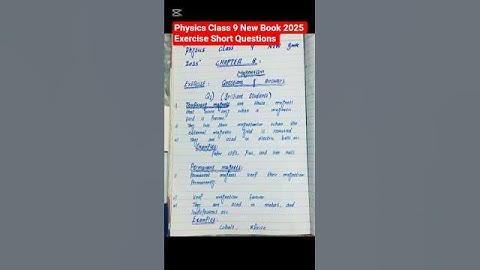 Physics Class 9 New Book 2025
Exercise Short Questions
Physics Class 9 New Book
2025 CHAPTER 8
Magnetism
Exercise: Questions & Answers
Q1) (Brilliant Students)
Temporary magnets are those magnets
that work only when a magnetic
field is present
They lose their magnetism when the
external magnetic field is removed
They are used in electric bells etc
Examples:
Paper clips, Pins, and iron nails
Permanent magnets:
Permanent magnets keep their magnetism
Permanently
Keep magnetism forever
They are used in motors, and
loudspeakers etc
Examples:
Cobalt,